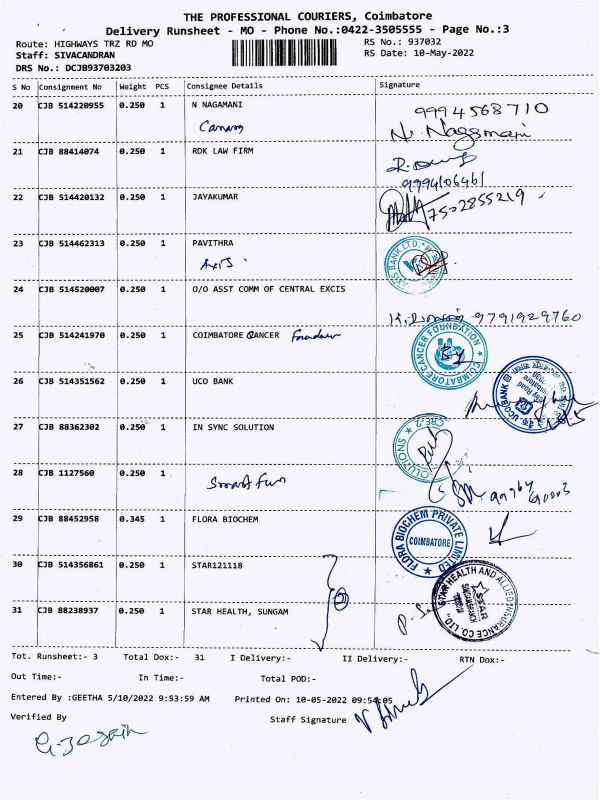 THE PROFESSIONAL COURIERS, Coimbatore
Delivery Runsheet - MO - Phone No.:0422-3505555 - Page No.:3
Route: HIGHWAYS TRZ RD MO RS No.: 937032
Staff: SIVACANDRAN RS Date: 10-May-2022
DRS No.: DCJB93703203
S No Consignment No Weight PCS Consignee Details Signature
20 CJB 514220955 0.250 1 N NAGAMANI 9994568710
N. Nagamani
21 CJB 88414074 0.250 1 RDK LAW FIRM
9994106461
22 CJB 514420132 0.250 1 JAYAKUMAR 7502855219
23 CJB 514462313 0.250 1 PAVITHRA
Axis AXIS BANK LTD.
24 CJB 514520007 0.250 1 O/O ASST COMM OF CENTRAL EXCIS
9791929760
25 CJB 514241970 0.250 1 COIMBATORE CANCER Foundation COIMBATORE CANCER FOUNDATION
26 CJB 514351562 0.250 1 UCO BANK UCO BANK
27 CJB 88362302 0.250 1 IN SYNC SOLUTION SOLUTIONS CBE-2
28 CJB 1127560 0.250 1
29 CJB 88452958 0.345 1 FLORA BIOCHEM FLORA BIOCHEM PRIVATE LIMITED
COIMBATORE
30 CJB 514356861 0.250 1 STAR121118
STAR HEALTH AND ALLIED INSURANCE CO. LTD.
STAR
31 CJB 88238937 0.250 1 STAR HEALTH, SUNGAM
Tot. Runsheet:- 3 Total Dox:- 31 I Delivery:- II Delivery:- RTN Dox:-
Out Time:- In Time:- Total POD:-
Entered By :GEETHA 5/10/2022 9:53:59 AM Printed On: 10-05-2022 09:54:05
Verified By Staff Signature